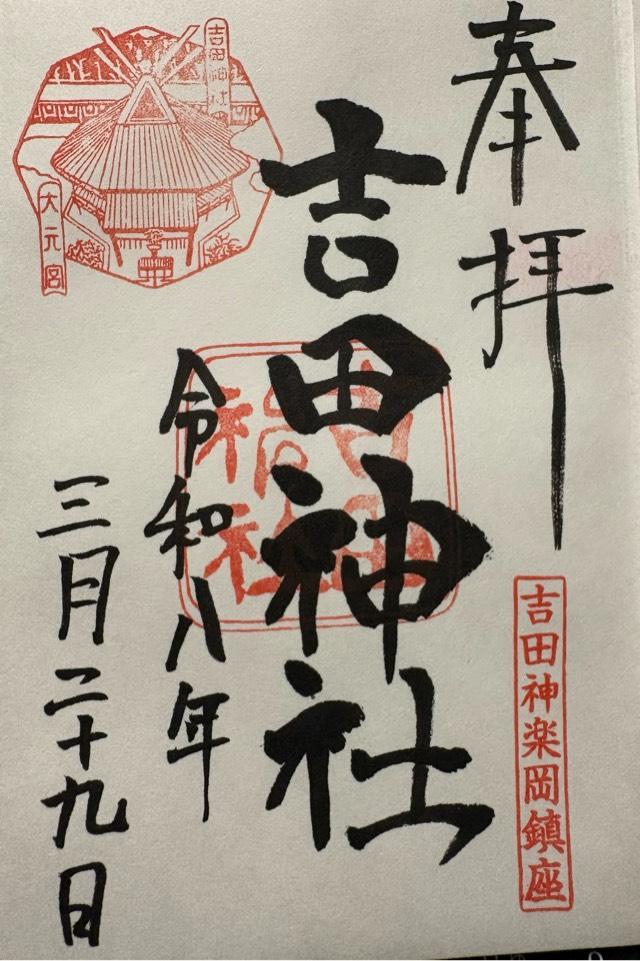 奉拝
吉田神楽岡鎮座
吉田神社
吉田神社
令和八年
三月二十九日
吉田神社
大元宮